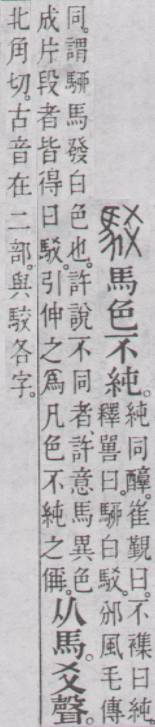 駁馬色不純。
純同醇。崔覲曰。不襍曰純
釋嘼曰。駵白駁。邠風毛傳
同。謂駵馬發白色也。許說不同者。許意馬異色
成片段者皆得曰駁。引伸之爲凡色不純之偁。
从馬。爻聲。
北角切。古音在二部。與駮各字。